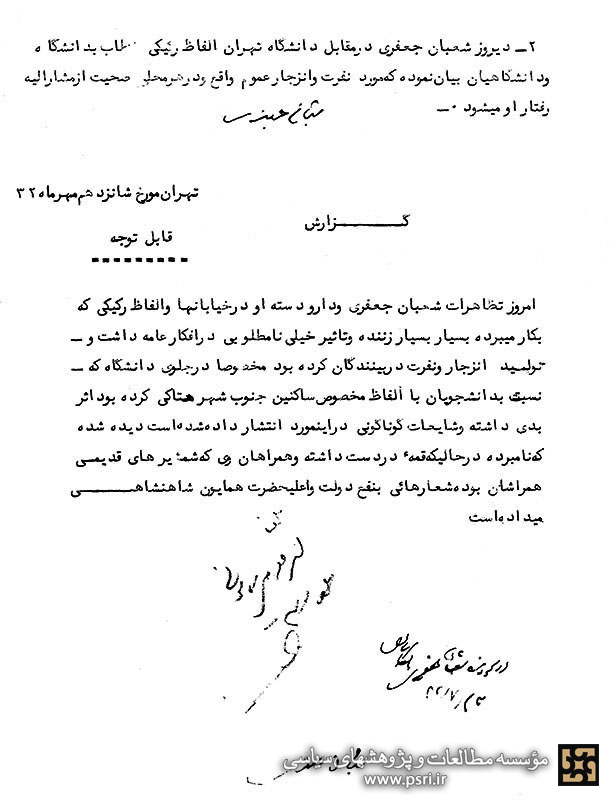 ۲ــ دیروز شعبان جعفری درمقابل دانشگاه تهران الفاظ رکیکی خطاب بدانشگاه
ودانشگاهیان بیان نموده که مورد نفرت وانزجار عموم واقع ودرهرمحلی صحبت ازمشارالیه
ورفتار او میشود ۰ــ
تهران مورخ شانزدهم مهرماه ۳۲
گــــــزارش
قابل توجه
امروز تظاهرات شعبان جعفری ودارودسته او درخیابانها والفاظ رکیکی که
بکار میبرده بسیار بسیار زننده وتاثیر خیلی نامطلوبی درافکار عامه داشت و ــ
تولـید انزجار ونفرت دربینندگان کرده بود مخصوصا درجلوی دانشگاه که ــ
نسبت بدانشجویان با الفاظ مخصوص ساکنین جنوب شهر هتاکی کرده بود اثر
بدی داشته وشایعات گوناگونی دراینمورد انتشار داده شده است دیده شده
که نامبرده درحالیکه قمهٔ دردست داشته وهمراهان وی که شمشیرهای قدیمی
همراشان بوده شعارهائی بنفع دولت واعلیحضرت همایون شاهنشاهـــــی
میداده است
مؤسسه مطالعات و پژوهشهای سیاسی
www.psri.ir